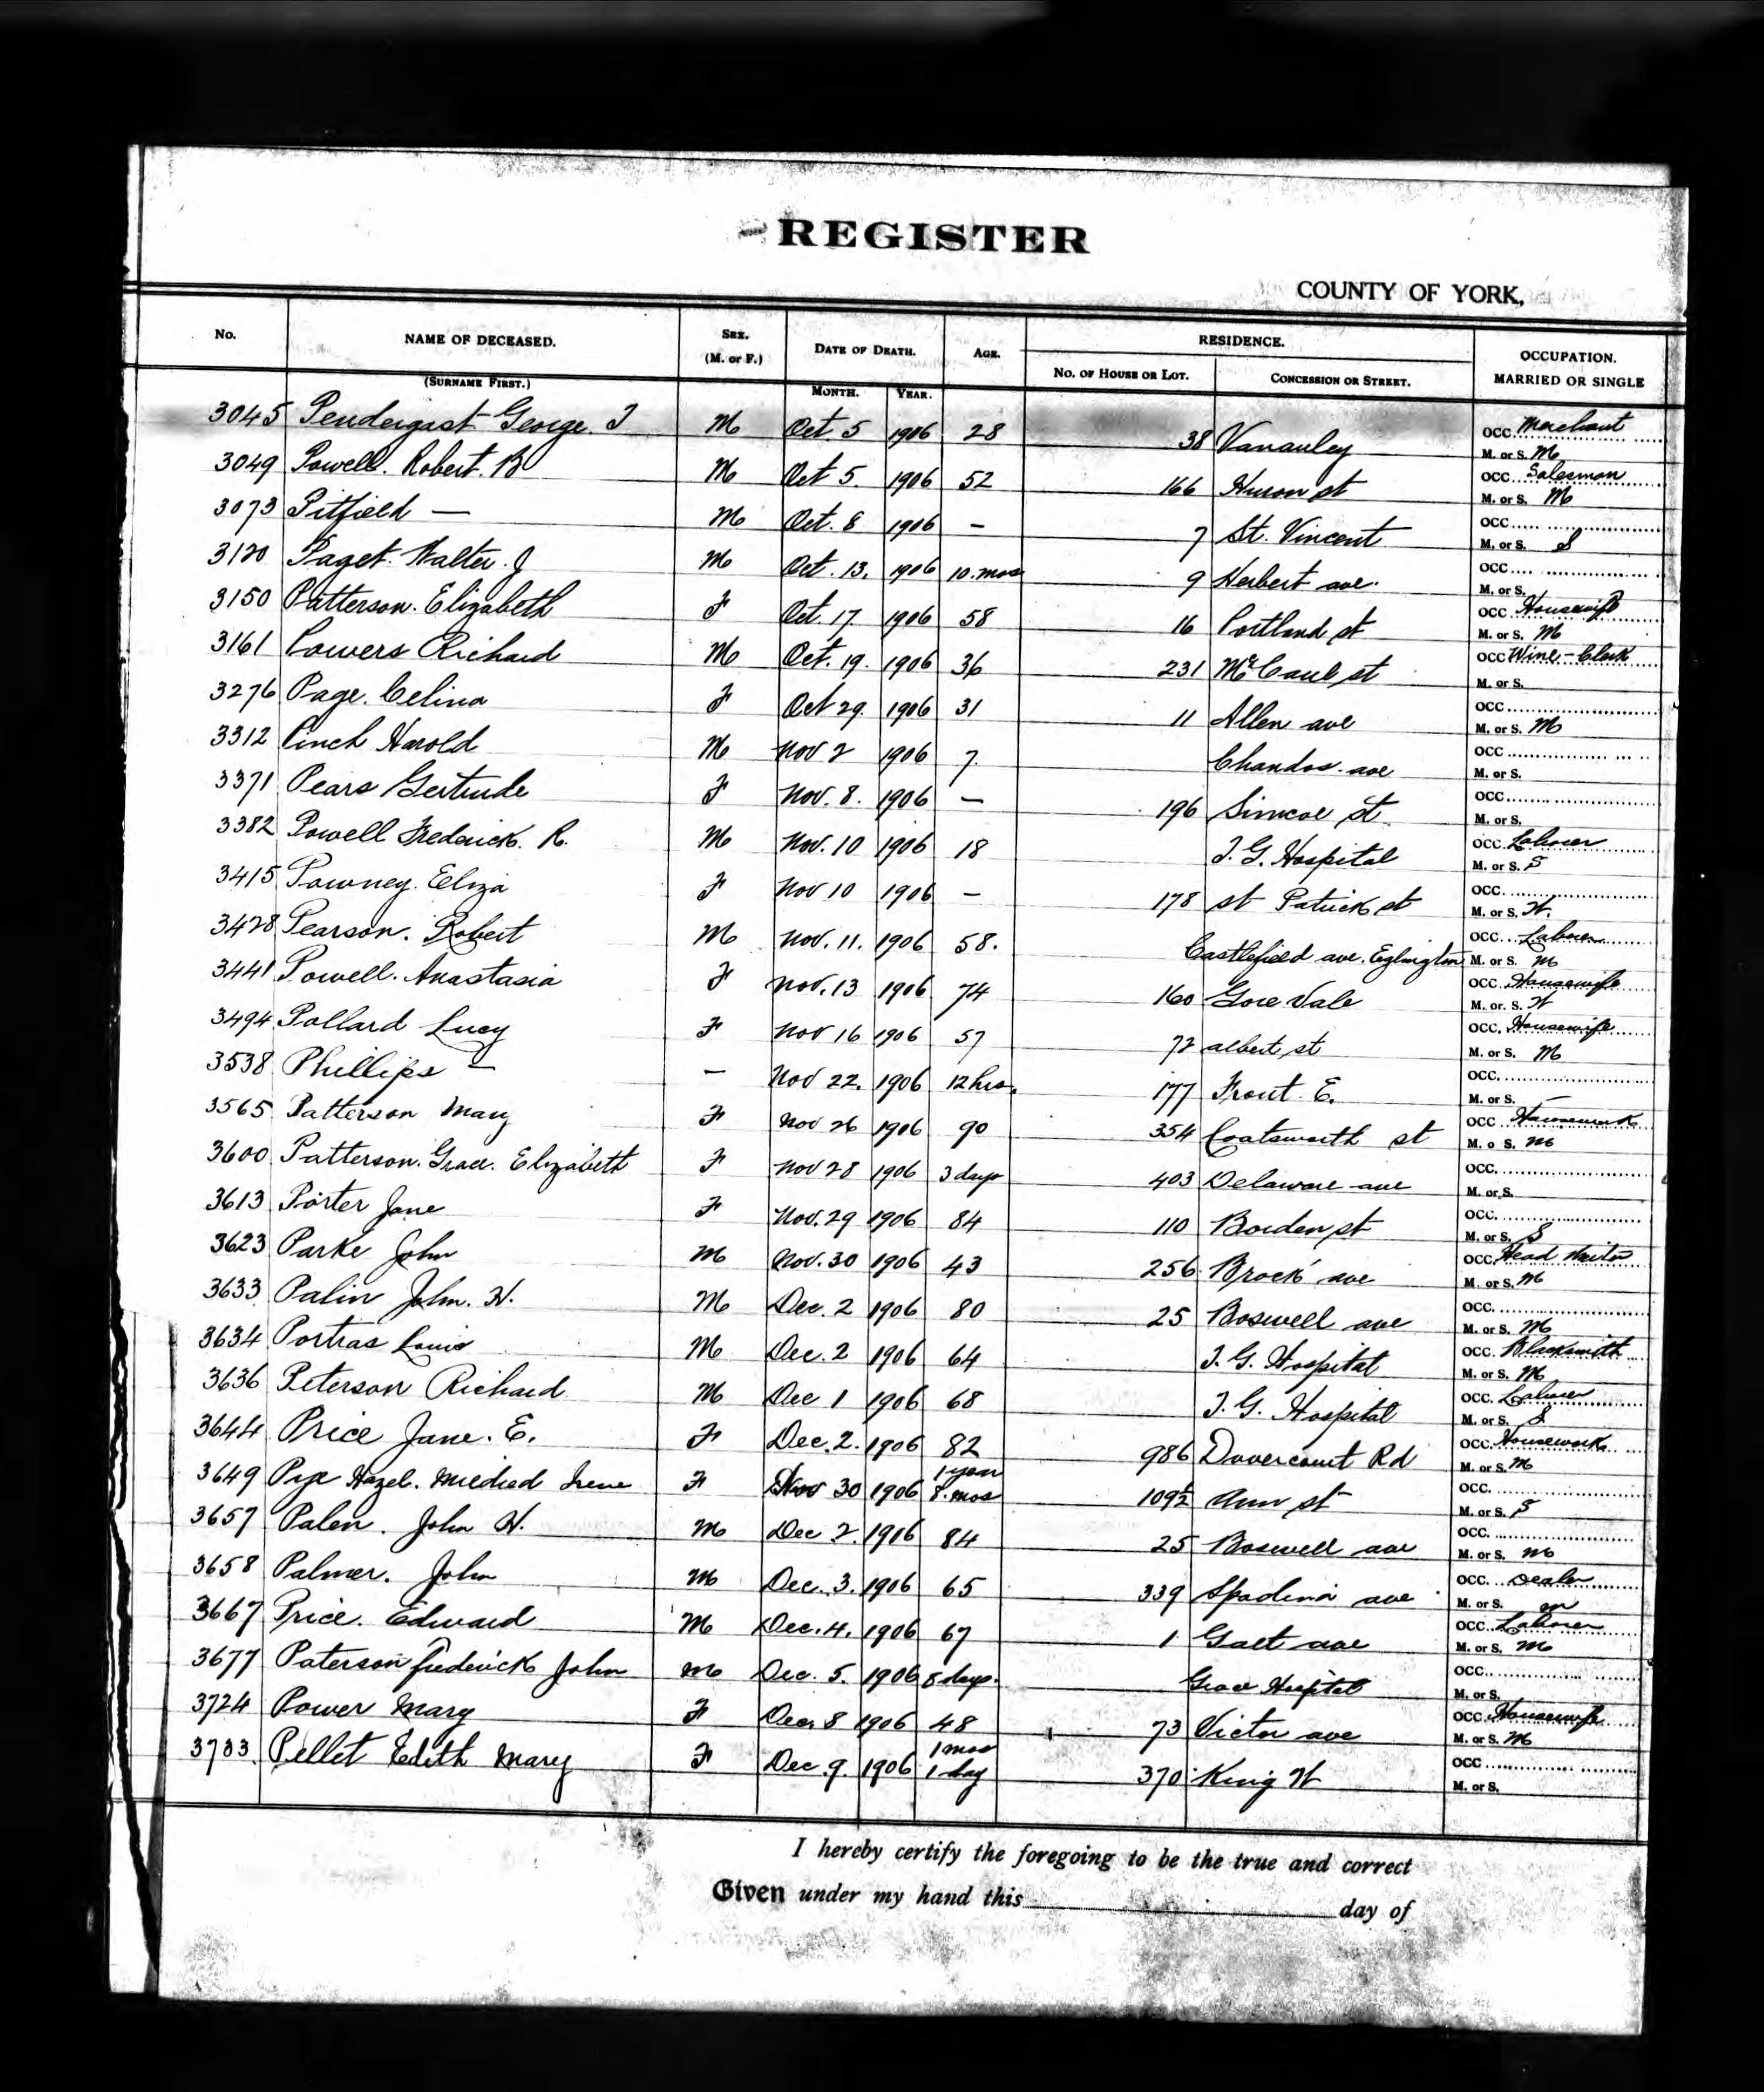 REGISTER
COUNTY OF YORK,
No. NAME OF DECEASED. SEX. DATE OF DEATH. AGE. RESIDENCE. OCCUPATION.
(M. or F.) No. of House or Lot. Concession or Street. MARRIED OR SINGLE
(Surname First.) Month. Year.
3045 Pendergast George. J M Oct. 5 1906 28 38 Vanauley OCC. Merchant M. or S. M
3049 Powell. Robert. B M Oct 5. 1906 52 166 Huron st OCC. Salesman M. or S. M
3073 Pitfield — M Oct. 8 1906 — 7 St. Vincent OCC. M. or S. S
3120 Paget. Walter. J M Oct. 13. 1906 10. mos 9 Herbert ave. OCC. M. or S.
3150 Patterson. Elizabeth F Oct. 17 1906 58 16 Portland st OCC. Housewife M. or S. M
3161 Powers Richard M Oct. 19. 1906 36 231 McCaul st OCC. Wine-Clerk M. or S.
3276 Page. Celina F Oct 29. 1906 31 11 Allen ave OCC. M. or S. M
3312 Pinch Harold M Nov 2 1906 7. Chandos. ave OCC. M. or S.
3371 Pears Gertrude F Nov. 8. 1906 — 196 Simcoe St. OCC. M. or S.
3382 Powell Frederick. R. M Nov. 10 1906 18 T. G. Hospital OCC. Laborer M. or S. S
3415 Pawney. Eliza F Nov 10 1906 — 178 St Patrick st OCC. M. or S. W.
3428 Pearson. Robert M Nov. 11. 1906 58. Castlefield ave. Eglington OCC. Laborer M. or S. M
3441 Powell. Anastasia F Nov. 13 1906 74 160 Gore Vale OCC. Housewife M. or. S. W
3494 Pollard Lucy F Nov 16 1906 57 72 albert st OCC. Housewife M. or S. M
3538 Phillips — — Nov 22. 1906 12 hrs. 177 Front. E. OCC. M. or S. —
3565 Patterson Mary F Nov 26 1906 90 354 Coatsworth st OCC. Housework M. o S. M
3600 Patterson. Grace. Elizabeth F Nov 28 1906 3 days 403 Delaware ave OCC. M. or S.
3613 Porter Jane F Nov. 29 1906 84 110 Borden st OCC. M. or S. S
3623 Parke John M Nov. 30 1906 43 256 Brock ave OCC. Head Waiter M. or S. M
3633 Palin John. H. M Dec. 2 1906 80 25 Boswell ave OCC. M. or S. M
3634 Portras Louis M Dec. 2 1906 64 T. G. Hospital OCC. Blacksmith M. or S. M
3636 Peterson Richard M Dec 1 1906 68 T. G. Hospital OCC. Laborer M. or S. S
3644 Price Jane. E. F Dec. 2. 1906 82 986 Dovercourt Rd OCC. Housework M. or S. M
3649 Pye Hazel. Mildred Irene F Nov 30 1906 1 year 8. mos 109½ Ann st OCC. M. or S. S
3657 Palen. John H. M Dec 2. 1906 84 25 Boswell ave OCC. M. or S. M
3658 Palmer. John M Dec. 3. 1906 65 339 Spadina ave OCC. Dealer M. or S. M
3667 Price. Edward M Dec. 4. 1906 67 1 Galt ave OCC. Laborer M. or S. M
3677 Paterson Frederick John M Dec. 5. 1906 8 days. Grace Hospital OCC. M. or S.
3724 Power Mary F Dec. 8 1906 48 73 Victor ave OCC. Housewife M. or S. M
3733. Pellet Edith Mary F Dec. 9. 1906 1 mos 1 day 370 King W OCC. M. or S.
I hereby certify the foregoing to be the true and correct
Given under my hand this day of